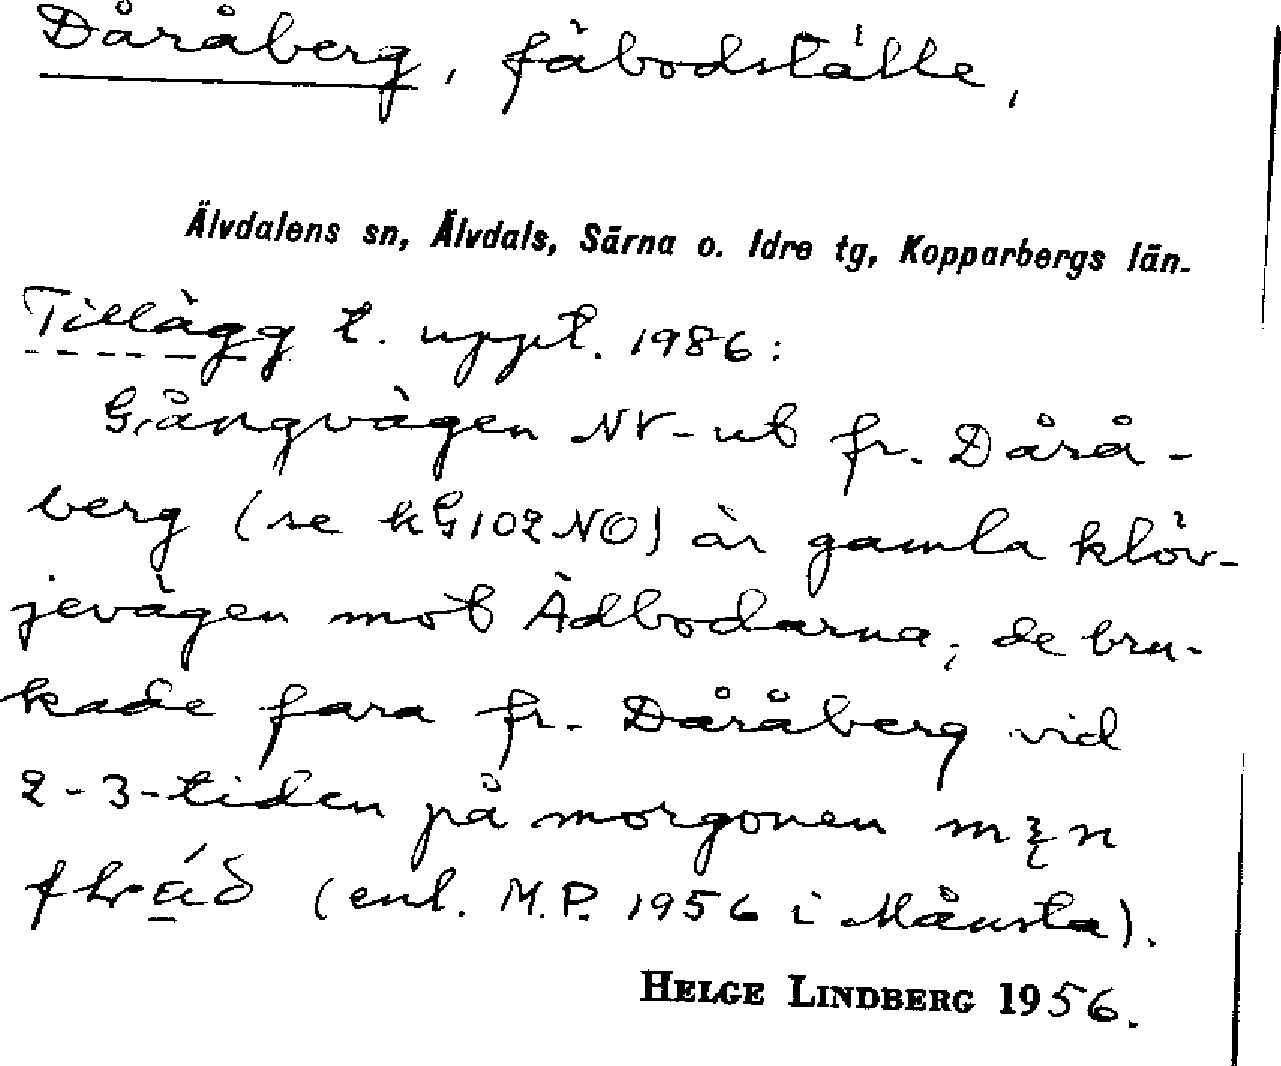 Dåråberg, fäbodställe,
Älvdalens sn, Älvdals, Särna o. Idre tg, Kopparbergs län.
Tillägg t. uppt. 1986:
Gångvägen NV-ut fr. Dårå-
berg (se kG102NO) är gamla klöv-
jevägen mot Ädbodarna; de bru-
kade fara fr. Dåråberg vid
2-3-tiden på morgonen
(enl. M.P. 1956 i Månsta).
HELGE LINDBERG 1956.